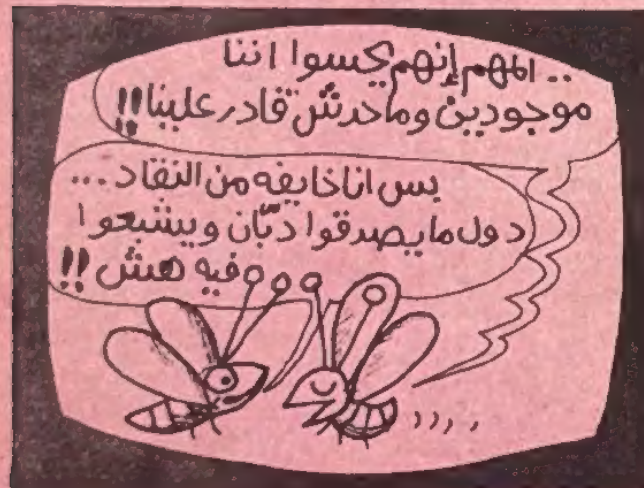 .. المهم إنهم يحسوا اننا
موجودين وماحدش قادر علينا!!
بس انا خايفه من النقاد...
دول ما يصدقوا دبّان ويشبعوا
فيه هش!!